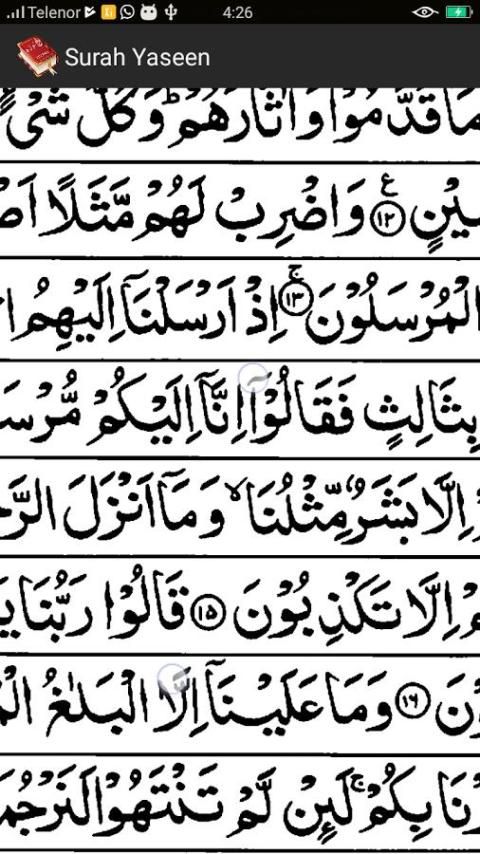 Telenor 4:26
Surah Yaseen
مَا قَدَّمُوْا وَاٰثَارَهُمْ ؕ وَكُلَّ شَیْءٍ
ۙ ﴿۱۲﴾ وَاضْرِبْ لَهُمْ مَّثَلًا اَصْ
الْمُرْسَلُوْنَ ۚ ﴿۱۳﴾ اِذْ اَرْسَلْنَاۤ اِلَیْهِمُ
بِثَالِثٍ فَقَالُوْۤا اِنَّاۤ اِلَیْكُمْ مُّرْسَ
اِلَّا بَشَرٌ مِّثْلُنَا ۙ وَمَاۤ اَنْزَلَ الرَّحْ
اِلَّا تَكْذِبُوْنَ ﴿۱۵﴾ قَالُوْا رَبُّنَا یَ
وْنَ ﴿۱۶﴾ وَمَا عَلَیْنَاۤ اِلَّا الْبَلٰغُ الْمُ
رْنَا بِكُمْ ۚ لَىِٕنْ لَّمْ تَنْتَهُوْا لَنَرْجُمَ